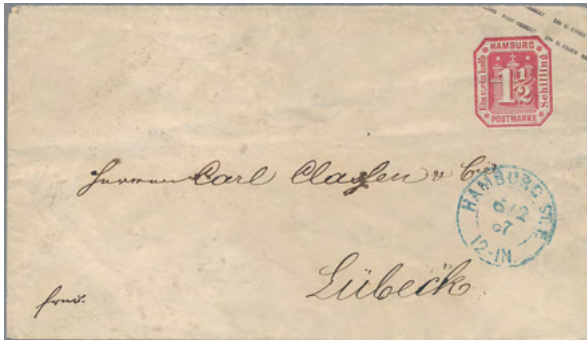 HAMBURG
Ein u. ein halb
1 1/2
Schilling
POSTMARKE
Herren Carl Classen & Cie
HAMBURG ST.P.
6/2
67
12-1N.
Lübeck